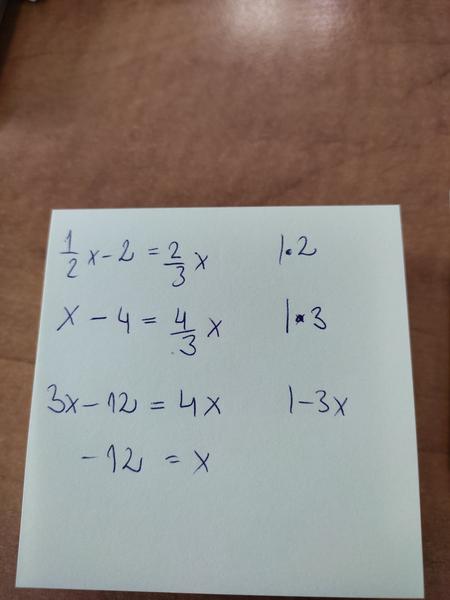 1/2 x - 2 = 2/3 x |·2
x - 4 = 4/3 x |·3
3x - 12 = 4x |-3x
-12 = x